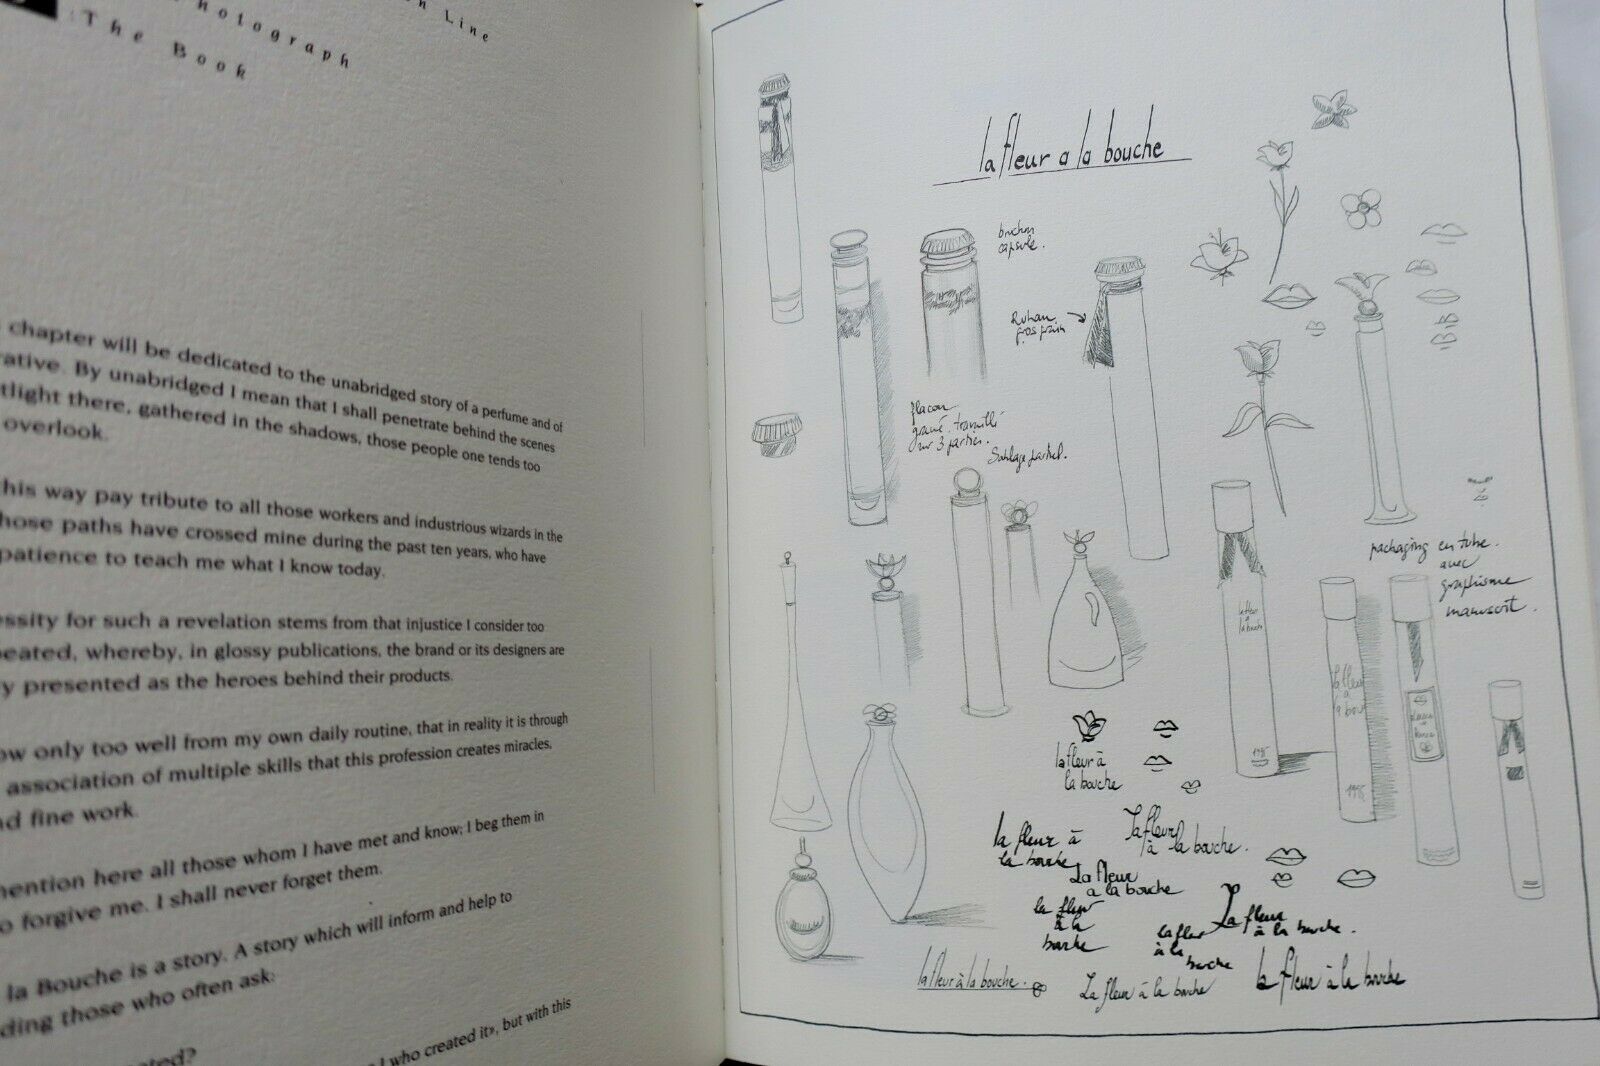 Line
hotograph
The Book
chapter will be dedicated to the unabridged story of a perfume and of
rative. By unabridged I mean that I shall penetrate behind the scenes
tlight there, gathered in the shadows, those people one tends too
overlook.
his way pay tribute to all those workers and industrious wizards in the
hose paths have crossed mine during the past ten years, who have
patience to teach me what I know today.
essity for such a revelation stems from that injustice I consider too
eated, whereby, in glossy publications, the brand or its designers are
y presented as the heroes behind their products.
ow only too well from my own daily routine, that in reality it is through
association of multiple skills that this profession creates miracles,
nd fine work.
mention here all those whom I have met and know; I beg them in
o forgive me. I shall never forget them.
la Bouche is a story. A story which will inform and help to
ding those who often ask:
ated?
I who created it», but with this
la fleur a la bouche
bouchon
capsule.
Ruban
gros grain
flacon
gravé. travaillé
sur 3 parties.
Sablage partiel.
packaging en tube.
avec
graphisme
manuscrit.
la fleur
à
la bouche
1995
la fleur
à
la bou
1995
la fleur à
la bouche
la fleur à
la bouche
la fleur
à la bouche.
La fleur
a la bouche
la fleur
à la
bouche
la fleur
à la
bouche
La fleur
à la bouche.
la fleur à la bouche.
La fleur à la bouche
la fleur à la bouche